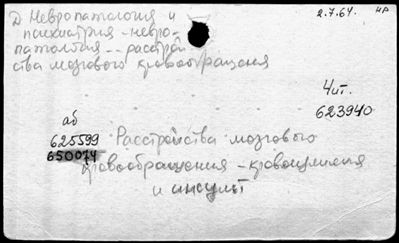 Д Невропатология и 2.7.64. НР
психиатрия - невро-
патология -- расстрой
ства мозгового кровообращения
Чит.
623940
аб
625599 Расстройства мозгового
650074 кровообращения - кровоизлияния
и инсульт